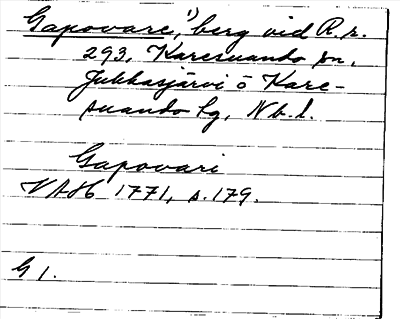 Gapovare,¹) berg vid R.r.
293, Karesuando sn,
Jukkasjärvi o Kare-
suando lg, Nb.l.
Gapovari
VAH 1771, s. 179.
G 1.